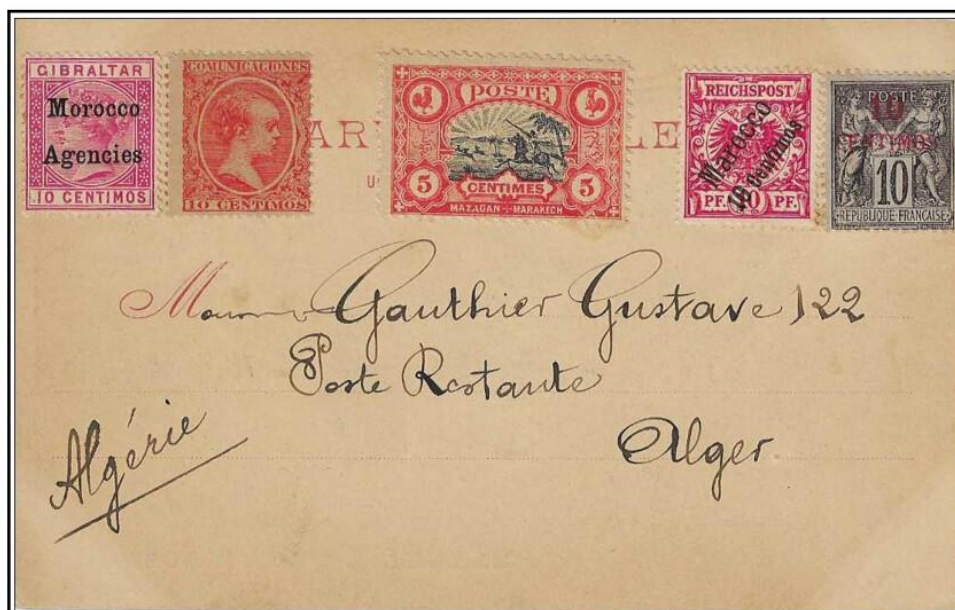 GIBRALTAR
Morocco
Agencies
10 CENTIMOS
COMUNICACIONES
10 CENTIMOS
POSTE
5 CENTIMES 5
MAZAGAN - MARAKECH
REICHSPOST
Marocco
10 Centimos
PF. PF.
POSTE
10
CENTIMOS
10
REPUBLIQUE FRANÇAISE
AR
LE
Gauthier Gustave 122
Poste Restante
Alger
Algérie